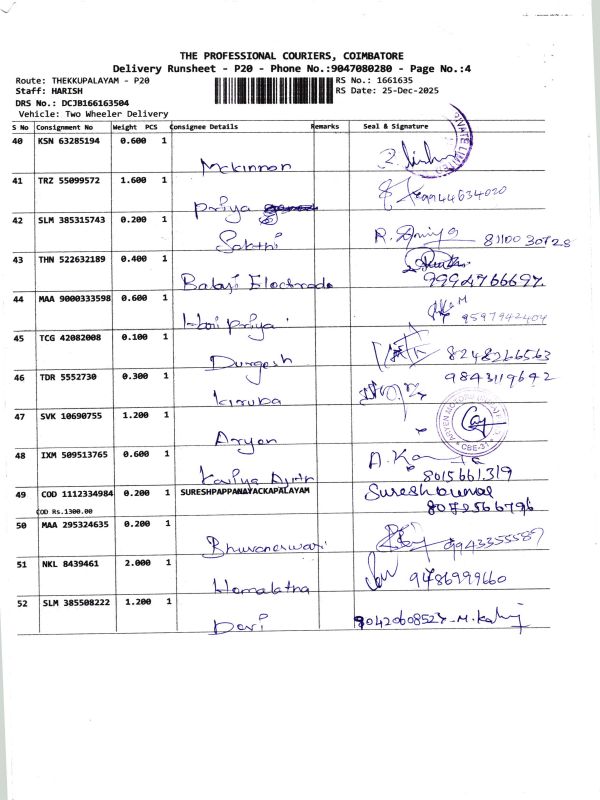 THE PROFESSIONAL COURIERS, COIMBATORE
Delivery Runsheet - P20 - Phone No.:9047080280 - Page No.:4
Route: THEKKUPALAYAM - P20
RS No.: 1661635
Staff: HARISH
RS Date: 25-Dec-2025
DRS No.: DCJB166163504
Vehicle: Two Wheeler Delivery
S No Consignment No Weight PCS Consignee Details Remarks Seal & Signature
40 KSN 63285194 0.600 1
Mckinnon
41 TRZ 55099572 1.600 1 9944634020
Priya
42 SLM 385315743 0.200 1
Sakthi 8110030728
43 THN 522632189 0.400 1
Balaji Electrode 9994766697
44 MAA 9000333598 0.600 1
Hari priya 9597942404
45 TCG 42082008 0.100 1
Durgesh 8248266563
46 TDR 5552730 0.300 1 9843119642
Kiruba
47 SVK 10690755 1.200 1
Aryen
CBE-37
48 IXM 509513765 0.600 1
Kaviya 8015661319
49 COD 1112334984 0.200 1 SURESHPAPPANAYACKAPALAYAM
COD Rs.1300.00 8072566796
50 MAA 295324635 0.200 1
Bhuvaneswari 9943355587
51 NKL 8439461 2.000 1
Hemalatha 9486999660
52 SLM 385508222 1.200 1
Devi 9042060852